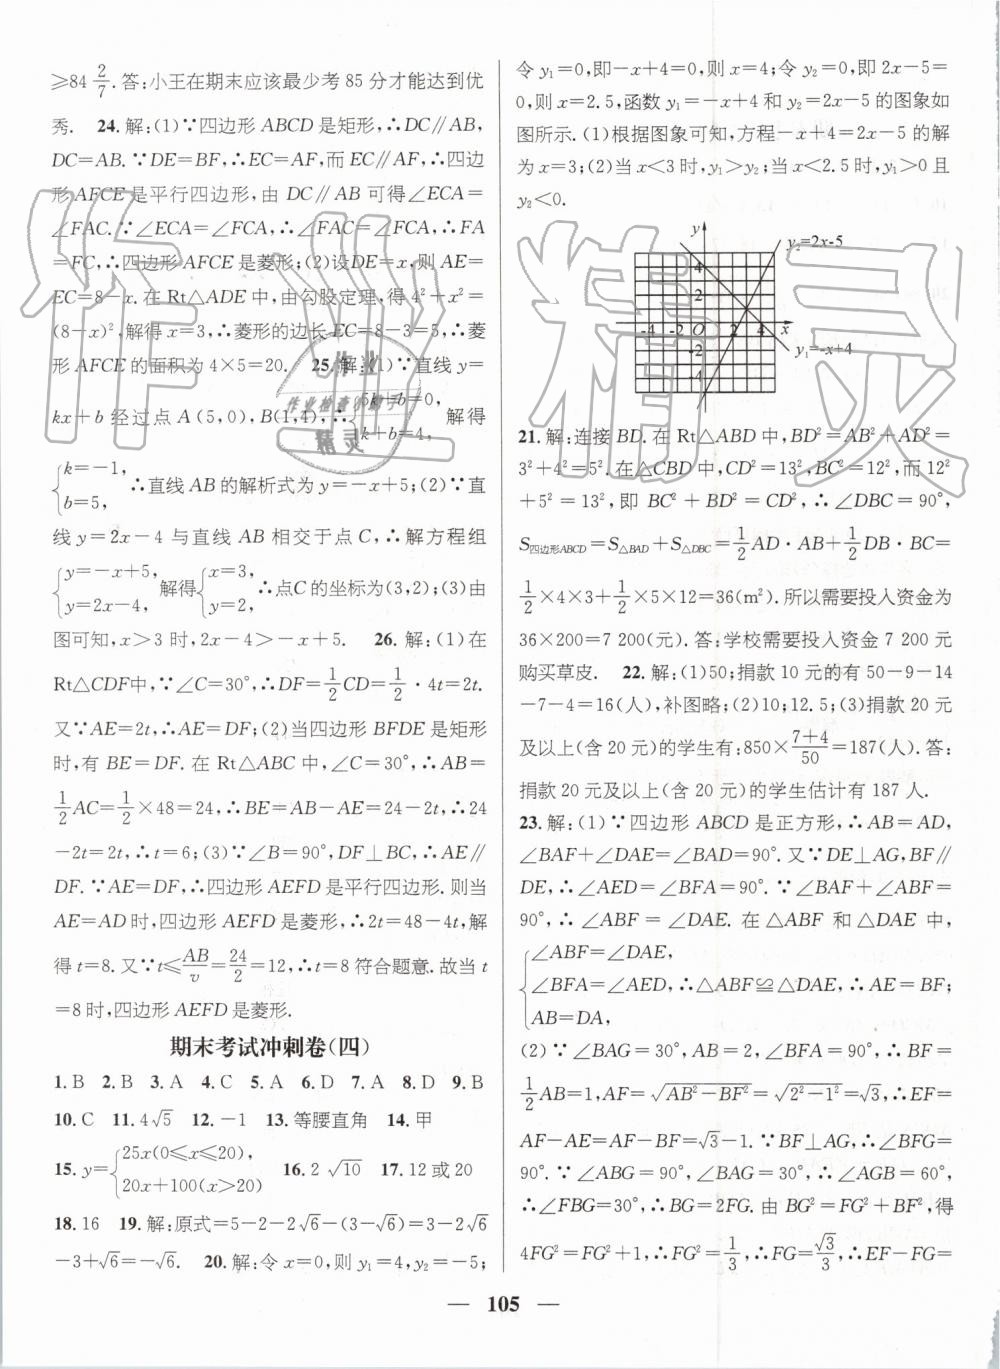 ≥84 2/7.答:小王在期末应该最少考 85 分才能达到优
秀. 24.解:(1)∵四边形 ABCD 是矩形,∴DC∥AB,
DC=AB.∵DE=BF,∴EC=AF,而 EC∥AF,∴四边
形 AFCE 是平行四边形,由 DC∥AB 可得∠ECA=
∠FAC.∵∠ECA=∠FCA,∴∠FAC=∠FCA,∴FA
=FC,∴四边形 AFCE 是菱形;(2)设DE=x,则 AE=
EC=8-x.在 Rt△ADE 中,由勾股定理,得 4²+x²=
(8-x)²,解得 x=3,∴菱形的边长 EC=8-3=5,∴菱
形 AFCE 的面积为 4×5=20. 25.解:(1)∵直线 y=
kx+b 经过点 A(5,0),B(1,4),∴{5k+b=0, k+b=4, 解得
{k=-1, b=5, ∴直线 AB 的解析式为 y=-x+5;(2)∵直
线 y=2x-4 与直线 AB 相交于点 C,∴解方程组
{y=-x+5, y=2x-4, 解得{x=3, y=2, ∴点C 的坐标为(3,2);(3)由
图可知,x>3 时,2x-4>-x+5. 26.解:(1)在
Rt△CDF中,∵∠C=30°,∴DF=1/2CD=1/2·4t=2t.
又∵AE=2t,∴AE=DF;(2)当四边形 BFDE 是矩形
时,有 BE=DF.在 Rt△ABC 中,∠C=30°,∴AB=
1/2AC=1/2×48=24,∴BE=AB-AE=24-2t,∴24
-2t=2t,∴t=6;(3)∵∠B=90°,DF⊥BC,∴AE∥
DF.∵AE=DF,∴四边形 AEFD 是平行四边形.则当
AE=AD时,四边形 AEFD 是菱形,∴2t=48-4t,解
得 t=8.又∵t≤AB/v=24/2=12,∴t=8 符合题意.故当 t
=8 时,四边形 AEFD 是菱形.
期末考试冲刺卷(四)
1.B 2.B 3.A 4.C 5.A 6.D 7.A 8.D 9.B
10.C 11.4√5 12.-1 13.等腰直角 14.甲
15.y={25x(0≤x≤20), 20x+100(x>20) 16.2√10 17.12 或 20
18.16 19.解:原式=5-2-2√6-(3-√6)=3-2√6
-3+√6=-√6. 20.解:令 x=0,则 y₁=4,y₂=-5;
令 y₁=0,即-x+4=0,则 x=4;令 y₂=0,即 2x-5=
0,则 x=2.5,函数 y₁=-x+4 和 y₂=2x-5 的图象如
图所示.(1)根据图象可知,方程-x+4=2x-5 的解
为 x=3;(2)当 x<3 时,y₁>y₂;当 x<2.5 时,y₁>0 且
y₂<0.
y
y₂=2x-5
4
2
-4 -2 O 2 4 x
-2
-4
y₁=-x+4
21.解:连接 BD.在 Rt△ABD 中,BD²=AB²+AD²=
3²+4²=5².在△CBD 中,CD²=13²,BC²=12²,而 12²
+5²=13²,即 BC²+BD²=CD²,∴∠DBC=90°,
S四边形ABCD=S△BAD+S△DBC=1/2AD·AB+1/2DB·BC=
1/2×4×3+1/2×5×12=36(m²).所以需要投入资金为
36×200=7 200(元).答:学校需要投入资金 7 200 元
购买草皮. 22.解:(1)50;捐款 10 元的有 50-9-14
-7-4=16(人),补图略;(2)10;12.5;(3)捐款 20 元
及以上(含 20 元)的学生有:850×(7+4)/50=187(人).答:
捐款 20 元及以上(含 20 元)的学生估计有 187 人.
23.解:(1)∵四边形 ABCD 是正方形,∴AB=AD,
∠BAF+∠DAE=∠BAD=90°.又∵DE⊥AG,BF∥
DE,∴∠AED=∠BFA=90°.∵∠BAF+∠ABF=
90°,∴∠ABF=∠DAE.在△ABF 和△DAE 中,
{∠ABF=∠DAE,
∠BFA=∠AED,∴△ABF≌△DAE,∴AE=BF;
AB=DA,
(2)∵∠BAG=30°,AB=2,∠BFA=90°,∴BF=
1/2AB=1,AF=√(AB²-BF²)=√(2²-1²)=√3,∴EF=
AF-AE=AF-BF=√3-1.∵BF⊥AG,∴∠BFG=
90°.∵∠ABG=90°,∠BAG=30°,∴∠AGB=60°,
∴∠FBG=30°,∴BG=2FG.由 BG²=FG²+BF²,得
4FG²=FG²+1,∴FG²=1/3,∴FG=√3/3,∴EF-FG=
— 105 —
作业精灵
作业检查小助手